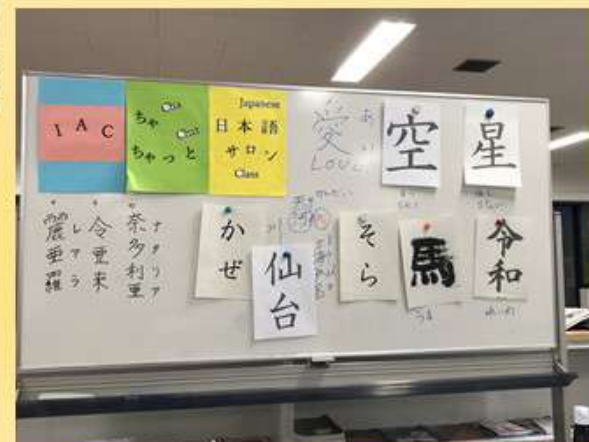 IAC
ちゃ Chit
Chat
ちゃっと
Japanese
日本語
サロン
Class
愛 あい
LOVE
空
星
麗亜羅 レアラ
令亜来
奈多利亜 ナタリア
かぜ
仙台
そら
馬
うま
令和
れいわ